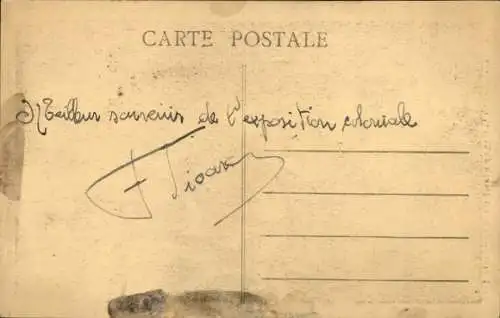 CARTE POSTALE
Meilleur souvenir de l'exposition coloniale